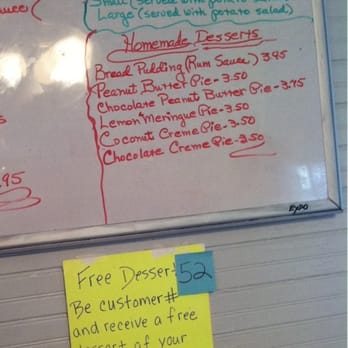 Small (served with potato sal
Large (served with potato salad)
Homemade Desserts
Bread Pudding (Rum Sauce) 3.95
Peanut Butter Pie - 3.50
Chocolate Peanut Butter Pie - 3.75
Lemon Meringue Pie - 3.50
Coconut Creme Pie - 3.50
Chocolate Creme Pie - 3.50
.95
EXPO
Free Desser
52
Be customer#
and receive a free
dessert of your